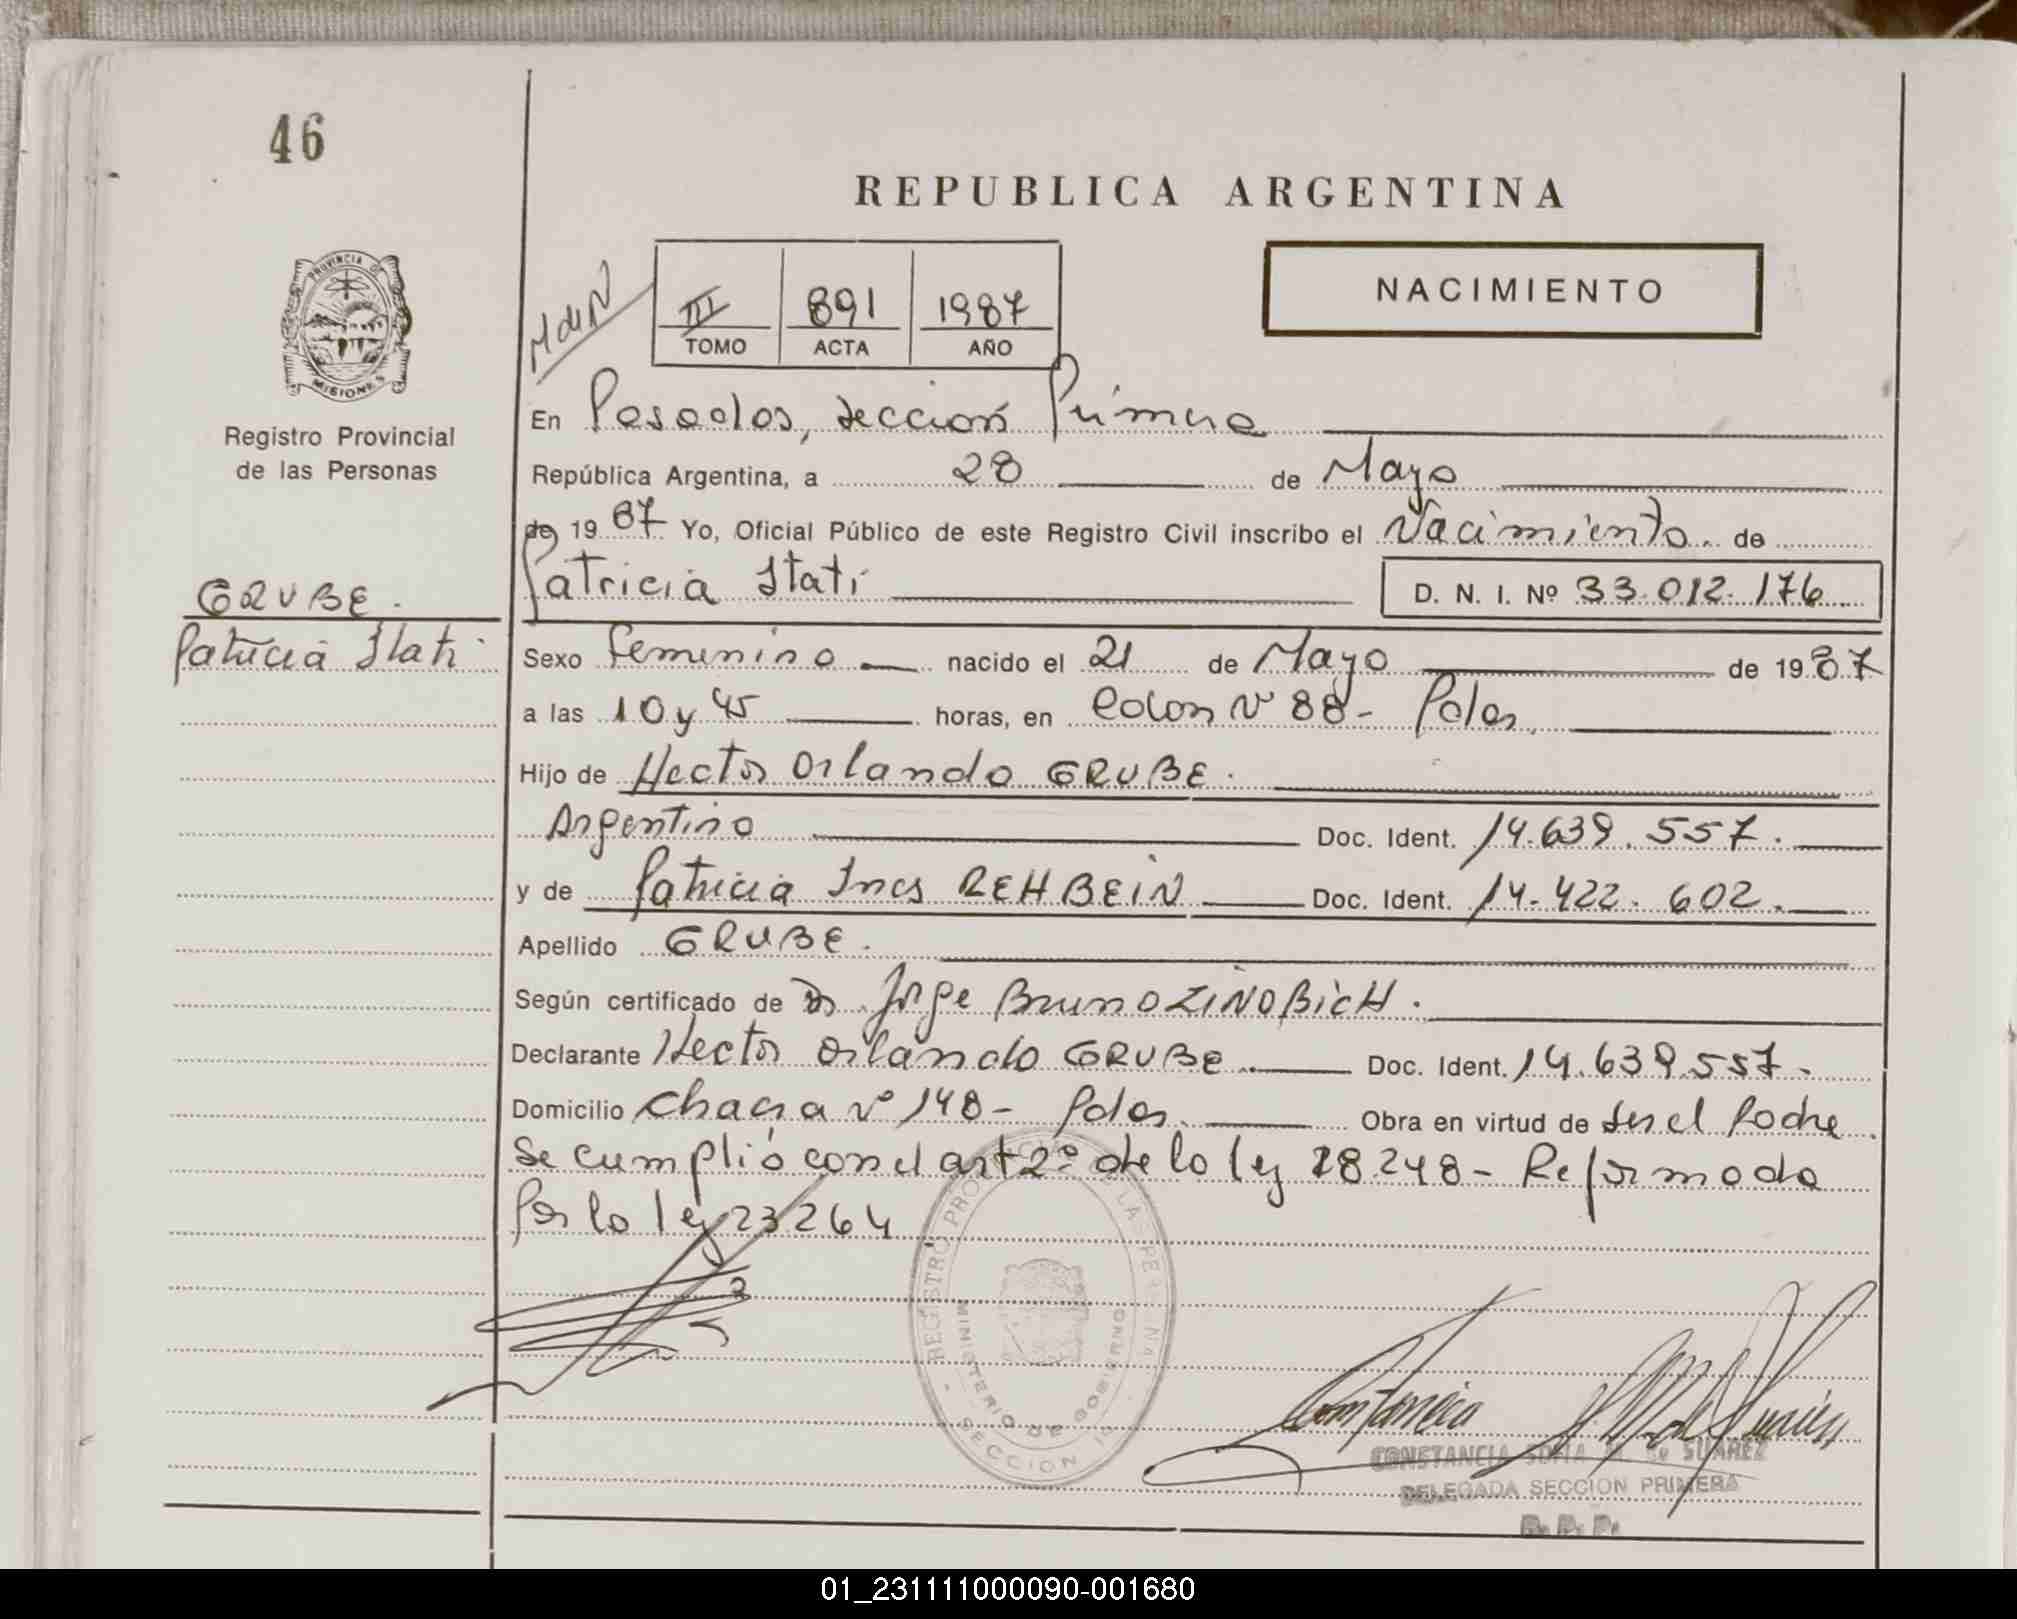 46
REPUBLICA ARGENTINA
PROVINCIA DE
MISIONES
III 891 1987
TOMO ACTA AÑO
NACIMIENTO
Registro Provincial
de las Personas
En Posadas, sección Primera
República Argentina, a 28 de Mayo
de 1987 Yo, Oficial Público de este Registro Civil inscribo el Nacimiento de
Patricia Itatí
D. N. I. Nº 33.012.176
GRUBE.
Patricia Itatí
Sexo Femenino nacido el 21 de Mayo de 1987
a las 10 y 45 horas, en Colon Nº 88 - Pdas.
Hijo de Hector Orlando GRUBE.
Argentino Doc. Ident. 14.639.557.
y de Patricia Ines REHBEIN Doc. Ident. 14.422.602.
Apellido GRUBE.
Según certificado de Dr. Jorge Bruno ZINOBICH.
Declarante Hector Orlando GRUBE Doc. Ident. 14.639.557.
Domicilio Chacra nº 148 - Pdas. Obra en virtud de Ser el Padre
Se cumplió con el art 2º de la ley 18.248 - Reformada
Por la ley 23264
REGISTRO PROVINCIAL DE LAS PERSONAS
MINISTERIO DE GOBIERNO
SECCION 1º
CONSTANCIA SOFIA M. de SUAREZ
DELEGADA SECCION PRIMERA
R. P. P.
01_231111000090-001680